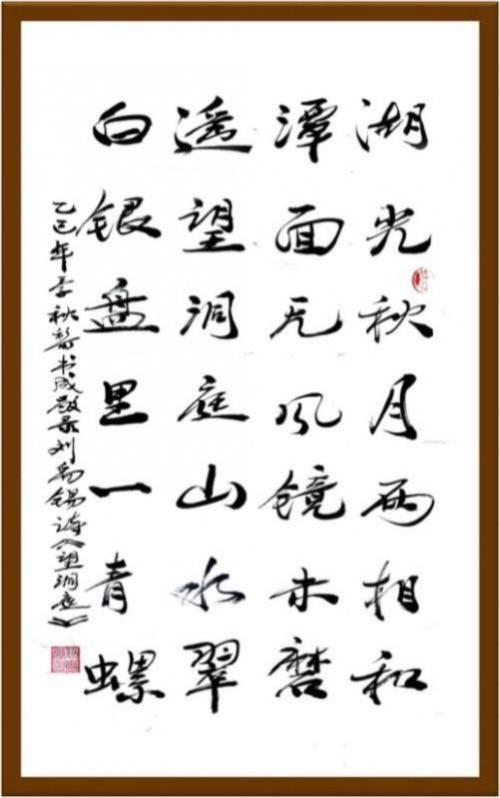 湖光秋月两相和
潭面无风镜未磨
遥望洞庭山水翠
白银盘里一青螺
乙巳年季秋书成录刘禹锡诗《望洞庭》